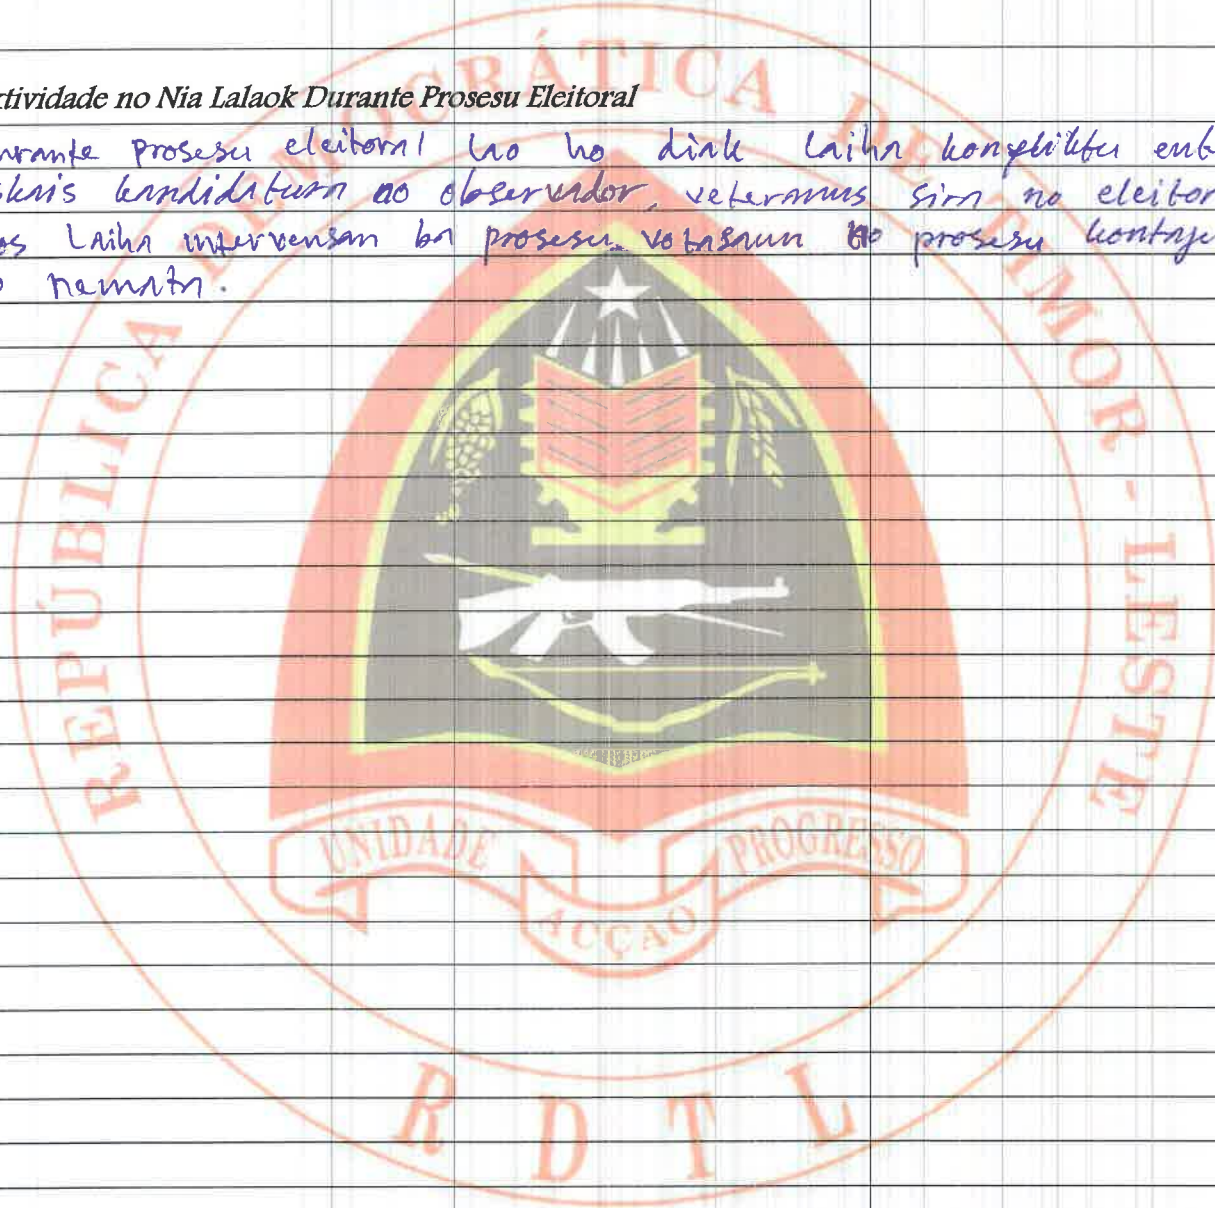 tividade no Nia Lalaok Durante Prosesu Eleitoral
urante prosesu eleitoral lao ho diak laiha konfliktu ent
skais kandidatura no observador, veteranus sira no eleitor
os laiha intervensan ba prosesu votasaun no prosesu kontaje
o remata.
REPÚBLICA DEMOCRÁTICA DE TIMOR-LESTE
UNIDADE ACÇÃO PROGRESSO
RDTL